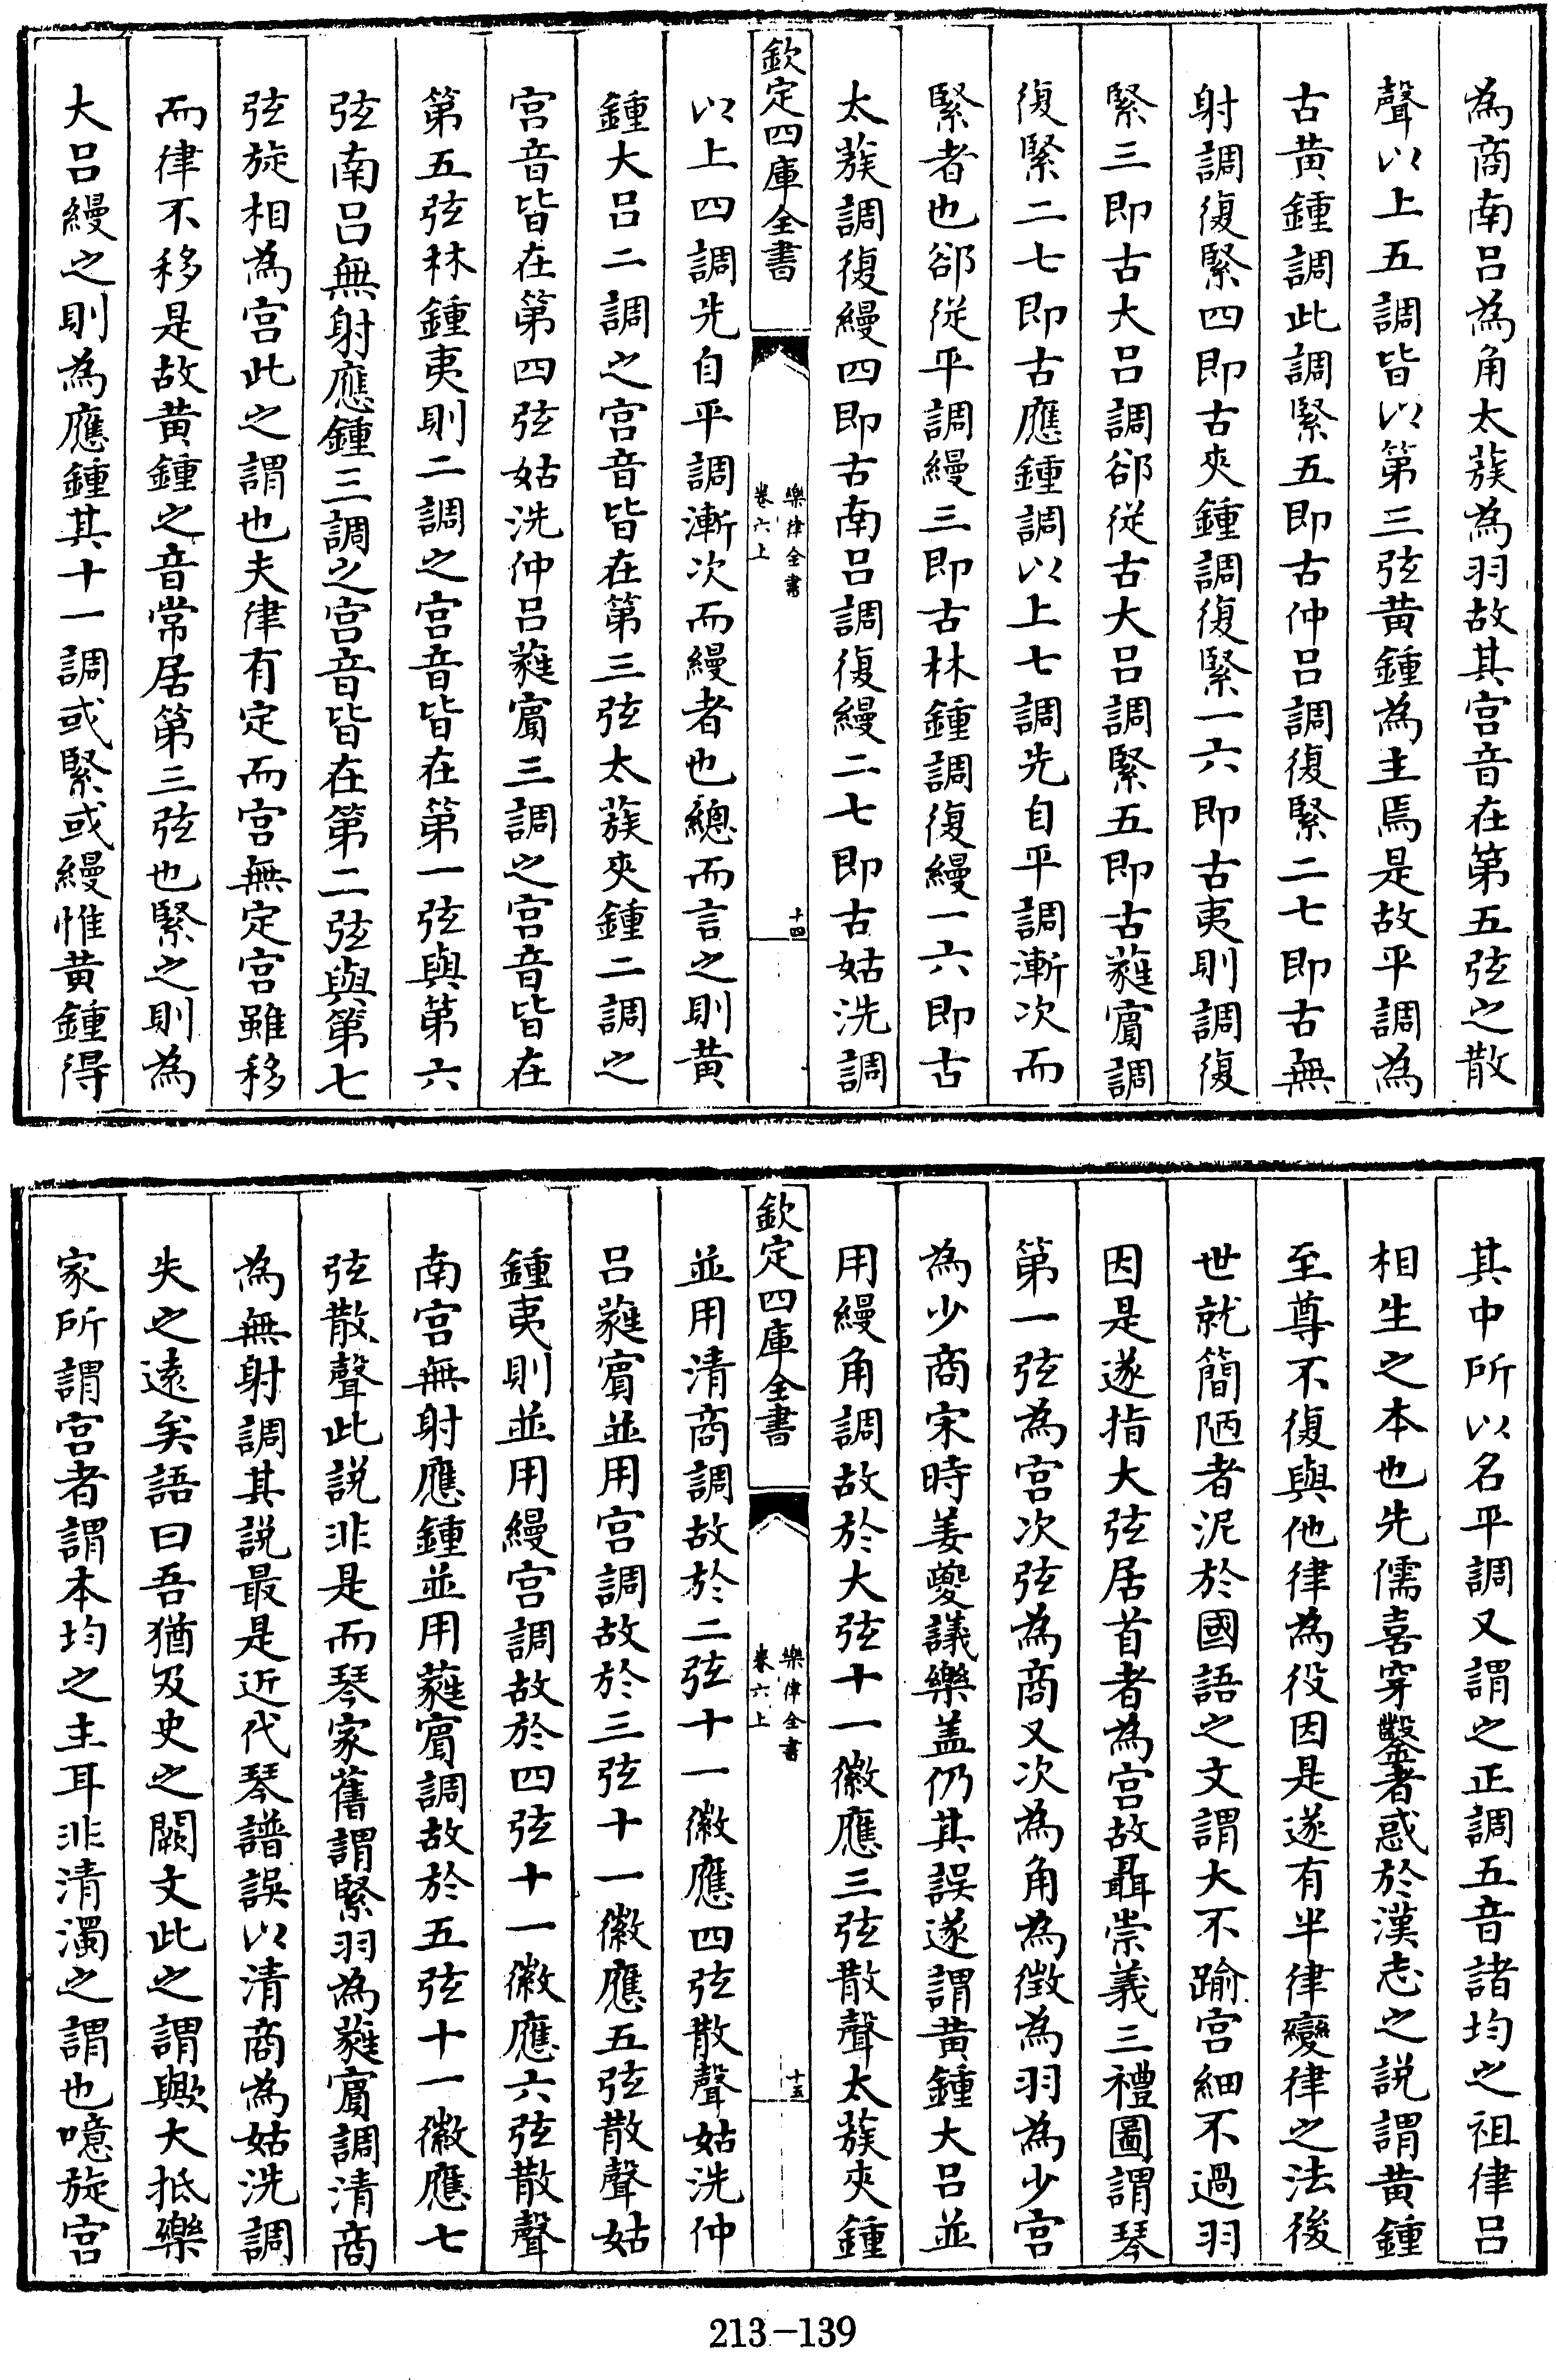 為商南呂為角太蔟為羽故其宮音在第五弦之散
聲以上五調皆以第三弦黃鍾為主焉是故平調為
古黃鍾調此調緊五即古仲呂調復緊二七即古無
射調復緊四即古夾鍾調復緊一六即古夷則調復
緊三即古大呂調郤從古大呂調緊五即古蕤賔調
復緊二七即古應鍾調以上七調先自平調漸次而
緊者也郤從平調縵三即古林鍾調復縵一六即古
太蔟調復縵四即古南呂調復縵二七即古姑洗調
欽定四庫全書
樂律全書
卷六上
十四
以上四調先自平調漸次而縵者也總而言之則黃
鍾大呂二調之宮音皆在第三弦太蔟夾鍾二調之
宮音皆在第四弦姑洗仲呂蕤賔三調之宮音皆在
第五弦林鍾夷則二調之宮音皆在第一弦與第六
弦南呂無射應鍾三調之宮音皆在第二弦與第七
弦旋相為宮此之謂也夫律有定而宮無定宮雖移
而律不移是故黃鍾之音常居第三弦也緊之則為
大呂縵之則為應鍾其十一調或緊或縵惟黃鍾得
其中所以名平調又謂之正調五音諸均之祖律呂
相生之本也先儒喜穿鑿者惑於漢志之說謂黃鍾
至尊不復與他律為役因是遂有半律變律之法後
世就簡陋者泥於國語之文謂大不踰宮細不過羽
因是遂指大弦居首者為宮故聶崇義三禮圖謂琴
第一弦為宮次弦為商又次為角為徵為羽為少宮
為少商宋時姜夔議樂盖仍其誤遂謂黃鍾大呂並
用縵角調故於大弦十一徽應三弦散聲太蔟夾鍾
欽定四庫全書
樂律全書
卷六上
十五
並用清商調故於二弦十一徽應四弦散聲姑洗仲
呂蕤賔並用宮調故於三弦十一徽應五弦散聲姑
鍾夷則並用縵宮調故於四弦十一徽應六弦散聲
南宮無射應鍾並用蕤賔調故於五弦十一徽應七
弦散聲此說非是而琴家舊謂緊羽為蕤賔調清商
為無射調其說最是近代琴譜誤以清商為姑洗調
失之遠矣語曰吾猶及史之闕文此之謂歟大抵樂
家所謂宮者謂本均之主耳非清濁之謂也噫旋宮
213-139